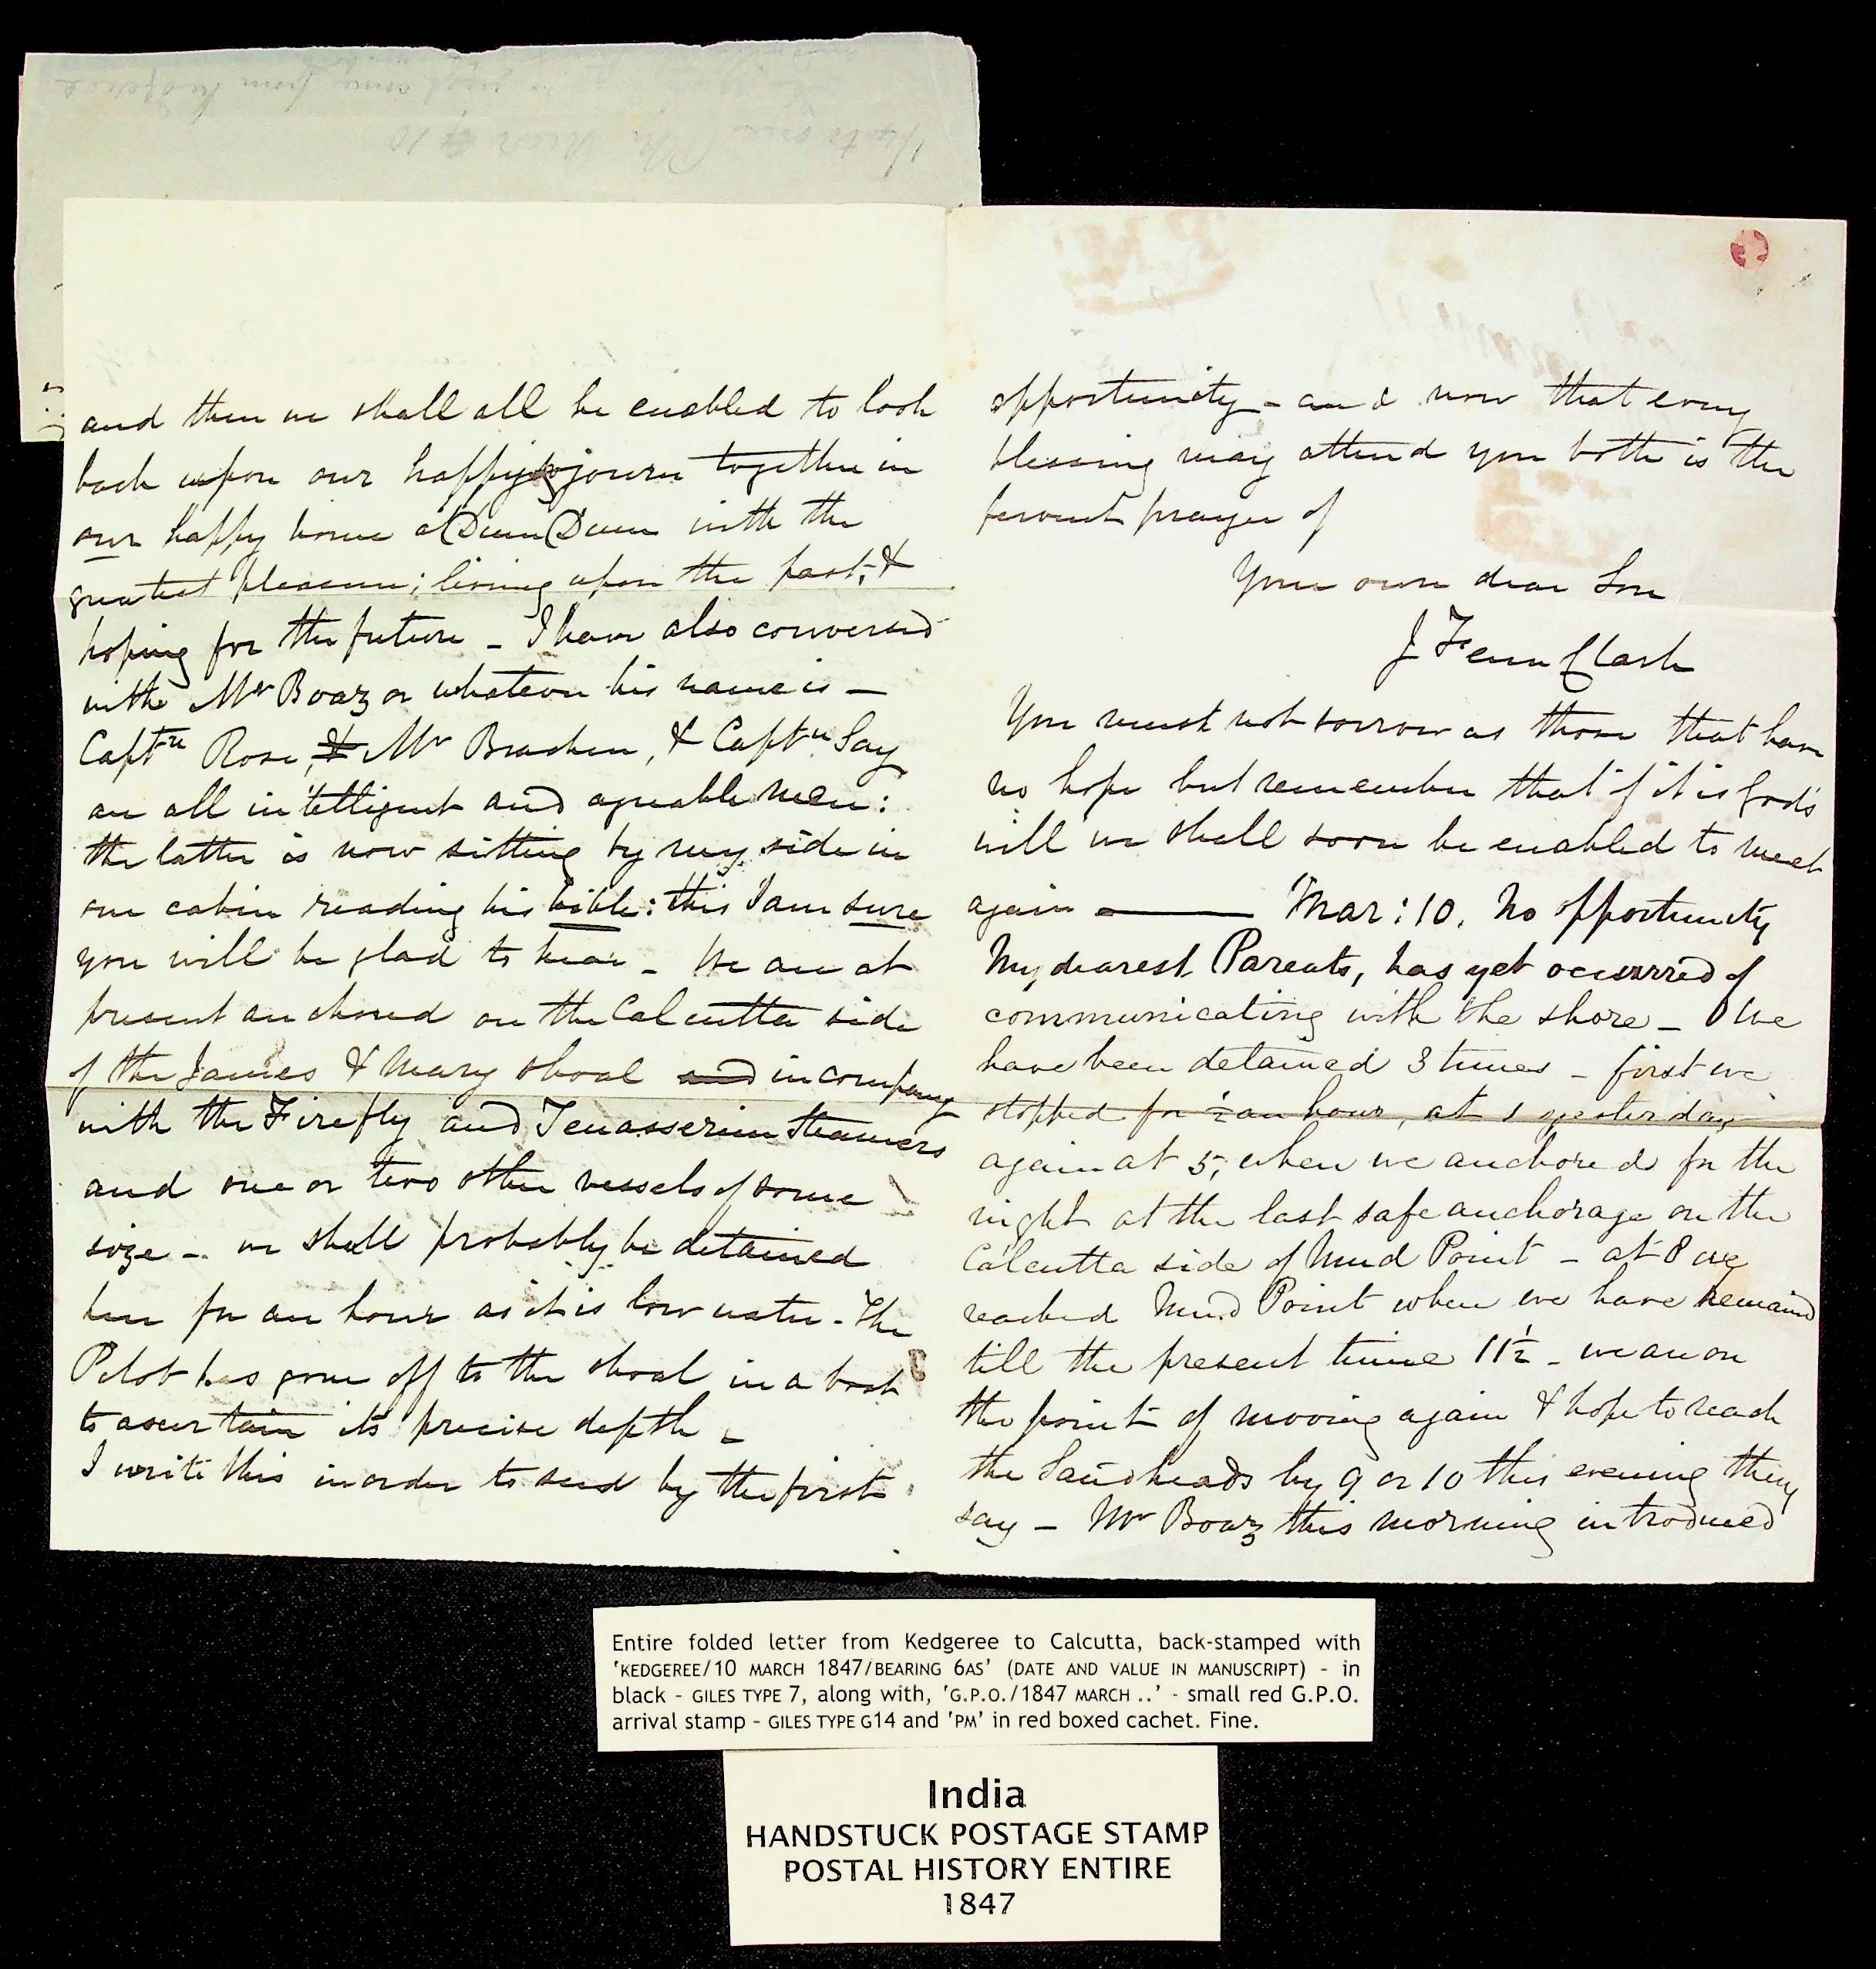 and then we shall all be enabled to look
back upon our happy sojourn together in
our happy home at Dum Dum with the
greatest pleasure; living upon the past, &
hoping for the future – I have also conversed
with Mr Boaz or whatever his name is –
Captn Rose, & Mr Bracken, & Captn Say
are all intelligent and agreable men:
the latter is now sitting by my side in
our cabin reading his bible: this I am sure
you will be glad to hear – We are at
present anchored on the Calcutta side
of the James & Mary shoal and in company
with the Firefly and Tenasserim Steamers
and one or two other vessels of some
size – we shall probably be detained
here for an hour as it is low water – The
Pilot has gone off to the shoal in a boat
to ascertain its precise depth –
I write this in order to send by the first
opportunity – and now that every
blessing may attend you both is the
fervent prayer of
Your own dear Son
J Fenn Clark
You must not sorrow as those that have
no hope but remember that if it is God's
will we shall soon be enabled to meet
again — Mar: 10. No opportunity
My dearest Parents, has yet occurred of
communicating with the shore – We
have been detained 3 times – first we
stopped for ½ an hour, at 1 yesterday
again at 5, when we anchored for the
night at the last safe anchorage on the
Calcutta side of Mud Point – at 8 we
reached Mud Point where we have remained
till the present time 11½ – we are on
the point of moving again & hope to reach
the Sandheads by 9 or 10 this evening they
say – Mr Boaz this morning introduced
Entire folded letter from Kedgeree to Calcutta, back-stamped with
'KEDGEREE/10 MARCH 1847/BEARING 6AS' (DATE AND VALUE IN MANUSCRIPT) - in
black - GILES TYPE 7, along with, 'G.P.O./1847 MARCH ..' - small red G.P.O.
arrival stamp - GILES TYPE G14 and 'PM' in red boxed cachet. Fine.
India
HANDSTUCK POSTAGE STAMP
POSTAL HISTORY ENTIRE
1847